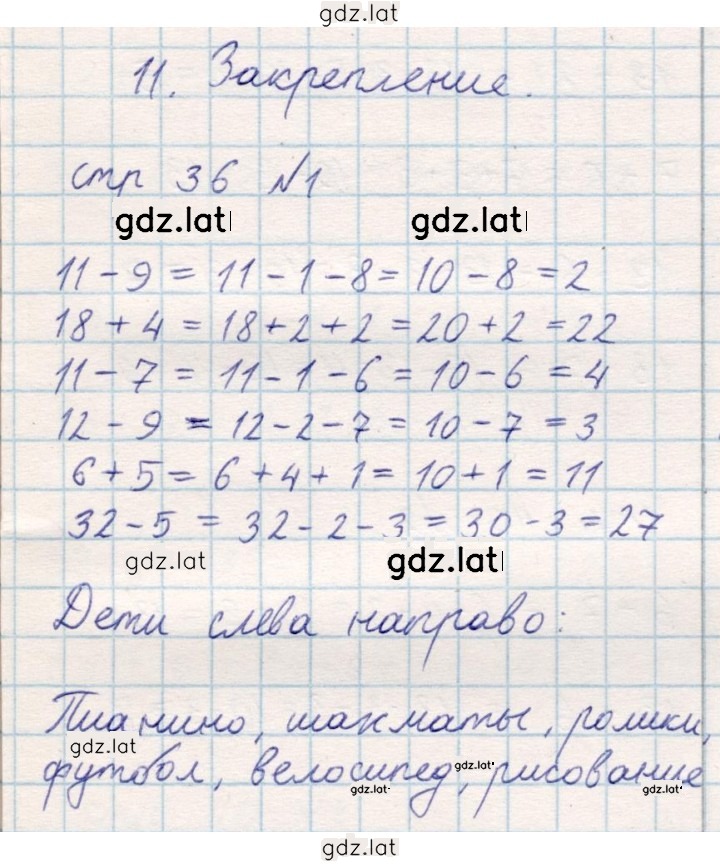 gdz.lat
11. Закрепление.
стр 36 №1
gdz.lat gdz.lat
11 - 9 = 11 - 1 - 8 = 10 - 8 = 2
18 + 4 = 18 + 2 + 2 = 20 + 2 = 22
11 - 7 = 11 - 1 - 6 = 10 - 6 = 4
12 - 9 = 12 - 2 - 7 = 10 - 7 = 3
6 + 5 = 6 + 4 + 1 = 10 + 1 = 11
32 - 5 = 32 - 2 - 3 = 30 - 3 = 27
gdz.lat gdz.lat
Дети слева направо:
Пианино, шахматы, ролики,
gdz.lat
футбол, велосипед, рисование
gdz.lat
gdz.lat gdz.lat
gdz.lat